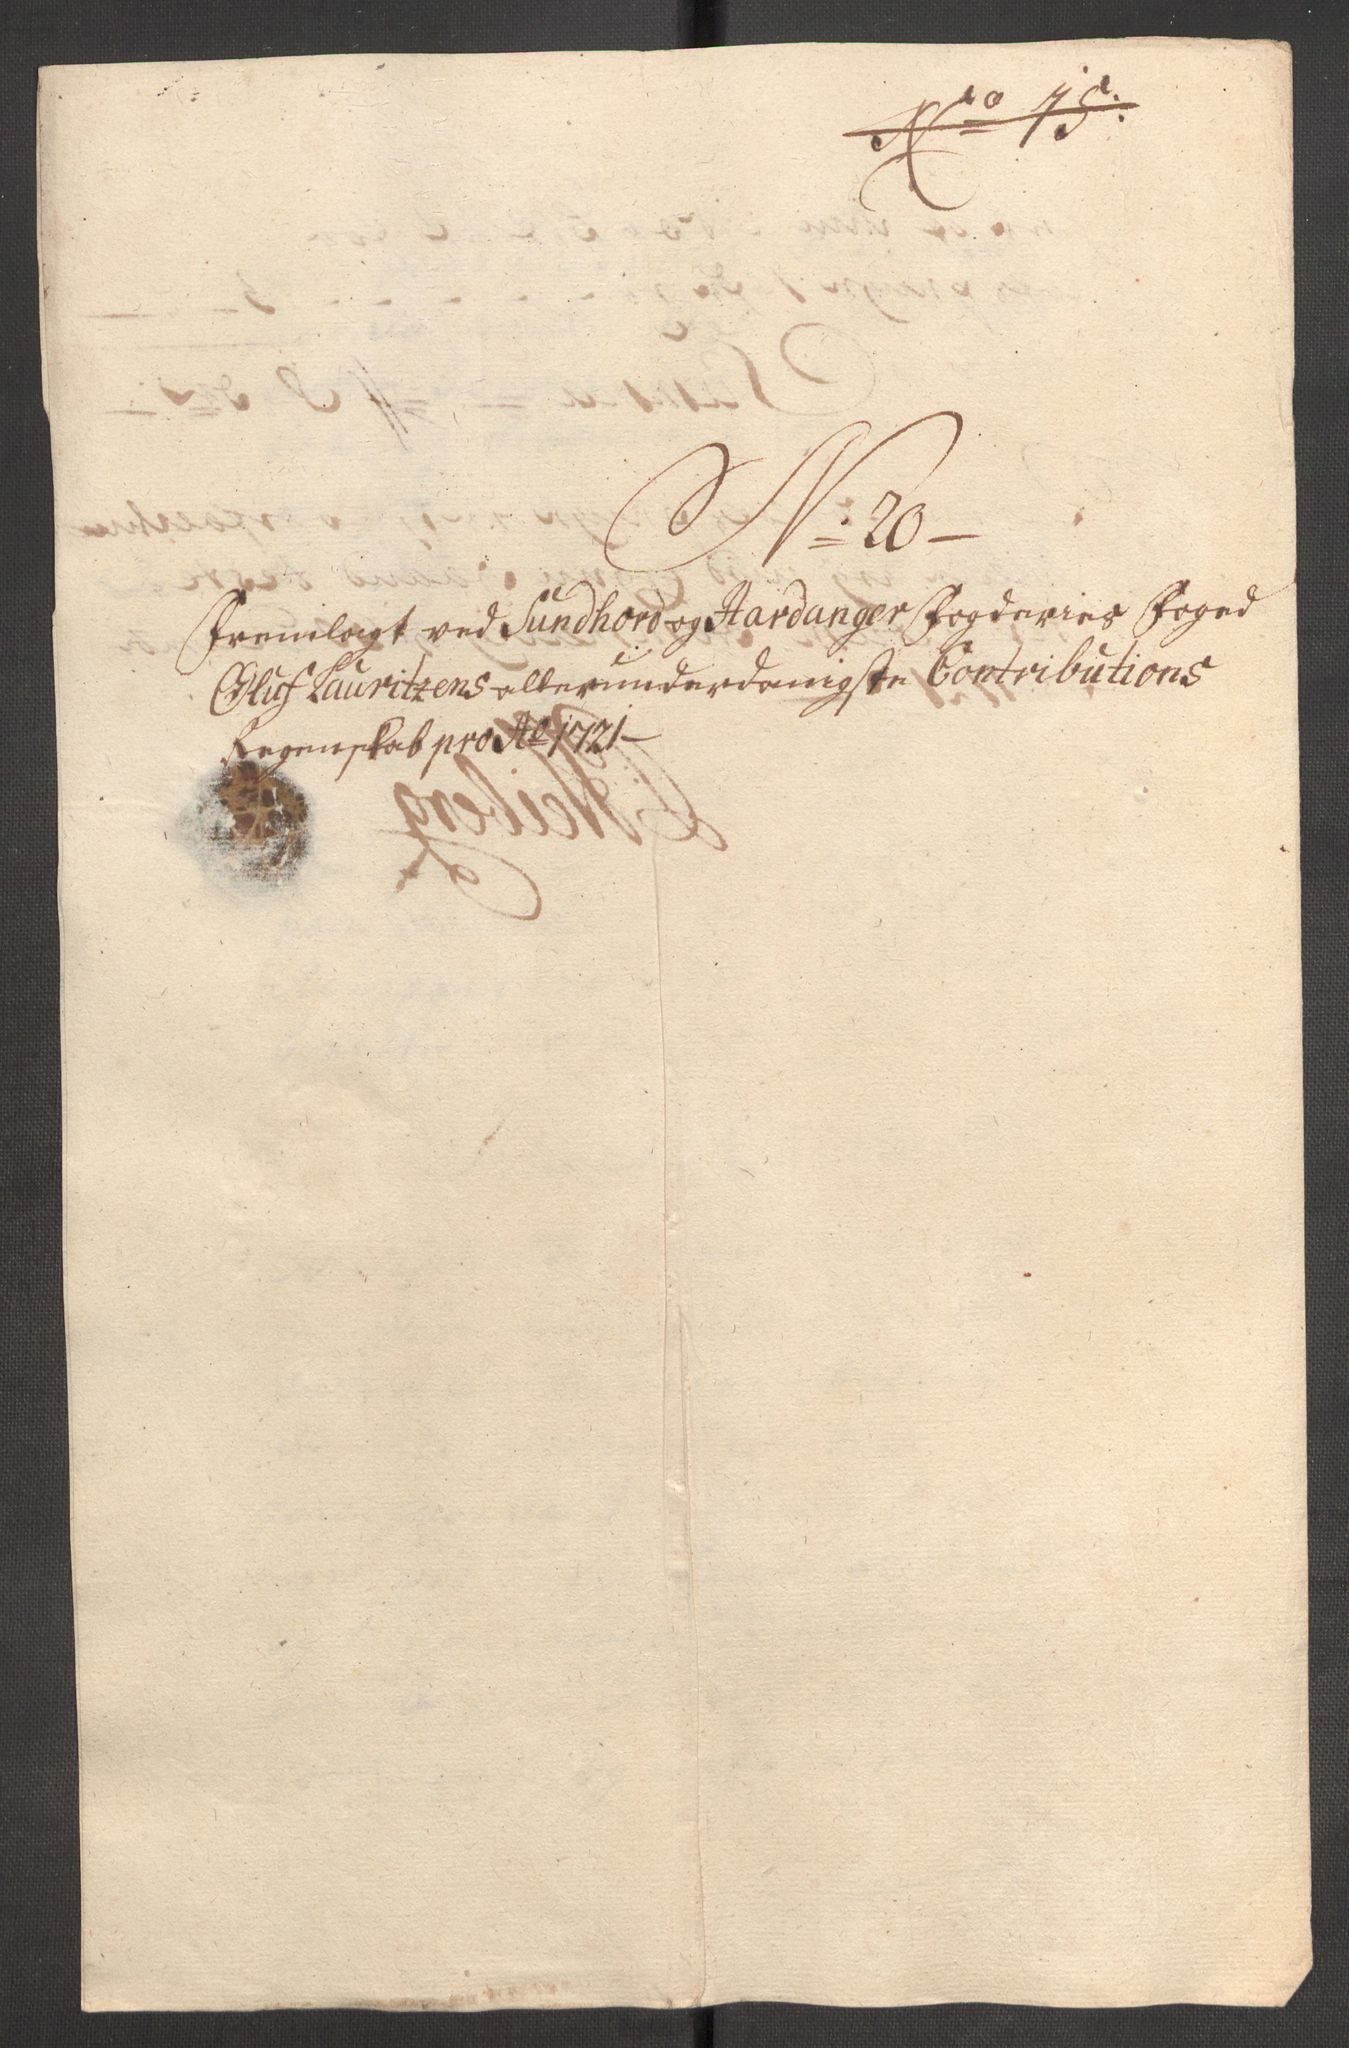 No 75:
No: 20 –
Fremlagt ved Sundhord og Hardanger Fogderies Foged
Oluf Lauritzens allerunderdanigste Contributions
Regenskab pro Ao 1721 –
Heiberg